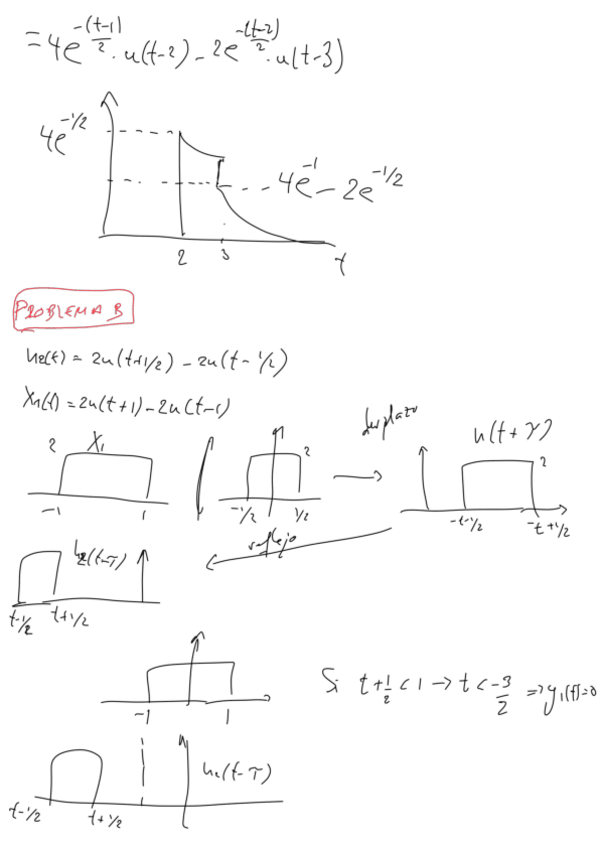 =4e^{-(t-1)/2}·u(t-2)-2e^{-(t-2)/2}·u(t-3)
4e^{-1/2}
4e^{-1}-2e^{-1/2}
2 3 t
PROBLEMA B
h2(t)=2u(t+1/2)-2u(t-1/2)
X1(t)=2u(t+1)-2u(t-1)
2 X1
-1 1
2
-1/2 1/2
h(t+τ)
2
-t-1/2 -t+1/2
reflejo
h2(t-τ)
t-1/2 t+1/2
-1 1
Si t+1/2<1→t<-3/2 ⇒y1(t)=0
h2(t-τ)
t-1/2 t+1/2